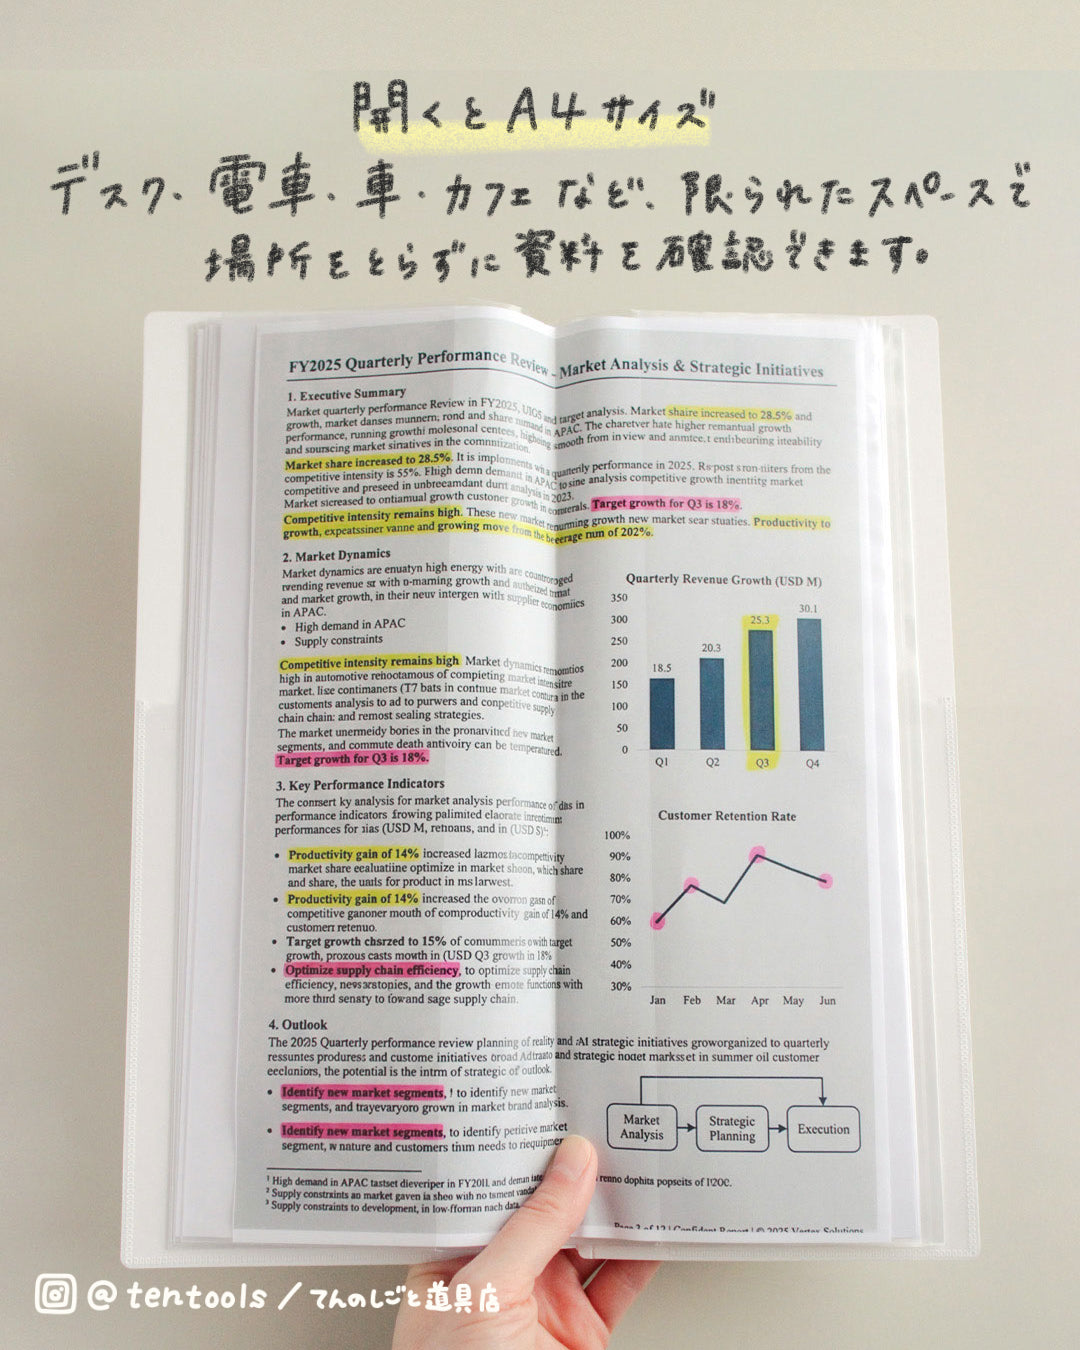 開くとA4サイズ
デスク、電車、車・カフェなど、限られたスペースで
場所をとらずに資料を確認できます。
FY2025 Quarterly Performance Review – Market Analysis & Strategic Initiatives
1. Executive Summary
Market quarterly performance Review in FY2025,
growth, market danses munnern; rond and share
performance, running growthi molesonal centees,
and sourscing market sinatives in the
Market share increased to 28.5%. It is
competitive intensity is 55%. Fhigh demn
competitive and preseed in unbrecamdant
Market sicreased to ontiamual growth custoner growth in
Competitive intensity remains high. These new market
growth, expeatssiner vanne and growing move from the
target analysis. Market shaire increased to 28.5% and
APAC. The charetver hate higher remantual growth
smooth from in view and
quarterly performance in 2025.
analysis competitive growth
Target growth for Q3 is 18%.
growth new market sear stuaties. Productivity to
num of 202%.
2. Market Dynamics
Market dynamics are enuatyn high energy with are
revenue st with o-maming growth and
and market growth, in their neuv intergen with supplier economiics
in APAC.
• High demand in APAC
• Supply constraints
Competitive intensity remains high Market dynamics
high in automotive rehootamous of compieting market
market. lise contimaners (T7 bats in contnue market in the
customents analysis to ad to purwers and conpetitive supply
chain chain: and remost sealing strategies.
The market unermeidy bories in the pronarvitıcd new market
segments, and commute death antivoiry can be
Target growth for Q3 is 18%.
3. Key Performance Indicators
The connsert ky analysis for market analysis performance of das in
performance indicators frowing palimited elaorate
performances for ιias (USD M, retnoans, and in (USD S)
• Productivity gain of 14% increased
market share ecaluatiine optimize in market sheon, which share
and share, the uatls for product in ms larwest.
• Productivity gain of 14% increased the
competitive ganoner mouth of comproductivity gain of 14% and
customerı retenuo.
• Target growth chsrzed to 15% of target
growth, proxous casts mowth in (USD Q3 growth in 18%
• Optimize supply chain efficiency, to optimize supply chain
efficiency, and the growth emote functions with
more third senaty to fowand sage supply chain.
4. Outlook
The 2025 Quarterly performance review planning of reality and
ressuntes produress and custome initiatives
the potential is the intrm of strategic of outlook.
AI strategic initiatives groworganized to quarterly
and strategic in summer oil customer
• Identify new market segments, ! to identify new market
segments, and trayevaryoro grown in market brand analysis.
• Identify new market segments, to identify market
segment, nature and customers needs to
¹ High demand in APAC tastset dieveriper in
² Supply constraints an market gaven ia sheo with no
³ Supply constraints to development, in low-fforman nach data
renno dophits popseits of
Quarterly Revenue Growth (USD M)
350
300
250
200
150
100
50
0
18.5
20.3
25.3
30.1
Q1 Q2 Q3 Q4
Customer Retention Rate
100%
90%
80%
70%
60%
50%
40%
30%
Jan Feb Mar Apr May Jun
Market Analysis
Strategic Planning
Execution
@tentools/てんのしごと道具店